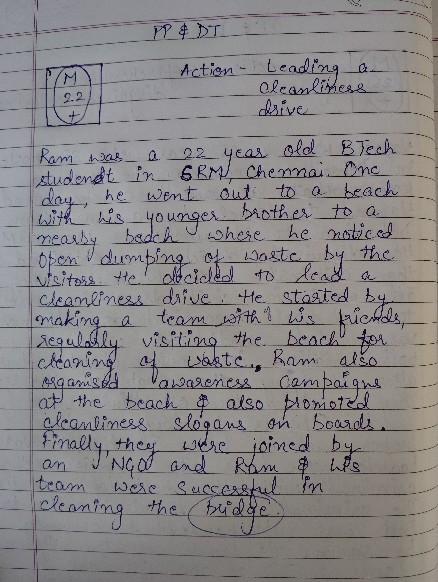 PP & DT
M
22
+
Action - Leading a
cleanliness
drive
Ram was a 22 year old BTech
student in SRM, Chennai. One
day, he went out to a beach
with his younger brother to a
nearby beach where he noticed
open dumping of waste by the
visitors. He decided to lead a
cleanliness drive. He started by
making a team with his friends,
regularly visiting the beach for
cleaning of waste. Ram also
organised awareness campaigns
at the beach & also promoted
cleanliness slogans on boards.
Finally, they were joined by
an NGO and Ram & his
team were successful in
cleaning the bridge.